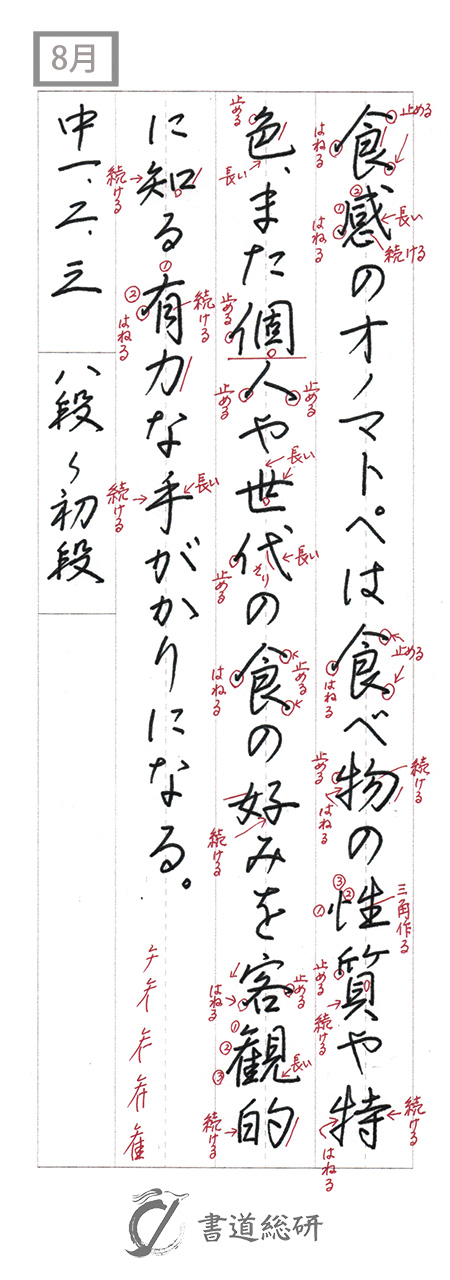 8月
食感のオノマトペは食べ物の性質や特
色、また個人や世代の食の好みを客観的
に知る有力な手がかりになる。
中一、二、三
八段〜初段
止める
はねる
①
②
長い
はねる
続ける
止める
はねる
止める
はねる
続ける
三角作る
①
②
③
止める
続ける
続ける
はねる
止める
長い
止める
止める
止める
長い
長い
そり
止める
止める
はねる
続ける
止める
はねる
①
②
③
長い
続ける
続ける
①
②
続ける
はねる
長い
続ける
書道総研